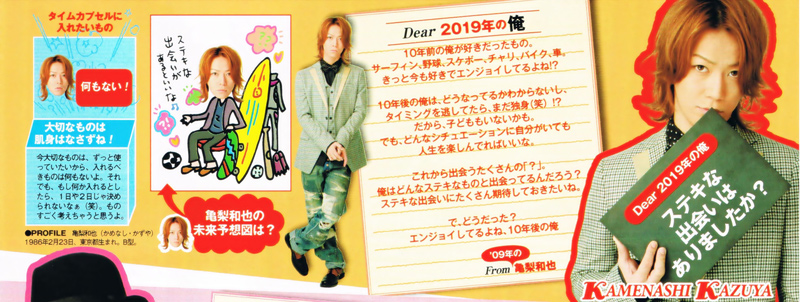 タイムカプセルに
入れたいもの
何もない！
大切なものは
肌身はなさずね！
今大切なものは、ずっと使
っていたいから、入れるべ
きものは何もないよ。それ
でも、もし何か入れるとし
たら、1日や2日じゃ決め
られないなぁ（笑）。もの
すごく考えちゃうと思うよ。
●PROFILE 亀梨和也（かめなし・かずや）
1986年2月23日、東京都生まれ。B型。
ステキな
出会いが
あるといいな♪
亀梨和也の
未来予想図は？
Dear 2019年の俺
10年前の俺が好きだったもの。
サーフィン、野球、スケボー、チャリ、バイク、車。
きっと今も好きでエンジョイしてるよね!?
10年後の俺は、どうなってるかわからないし、
タイミングを逃してたら、まだ独身（笑）!?
だから、子どももいないかも。
でも、どんなシチュエーションに自分がいても
人生を楽しんでればいいな。
これから出会うたくさんの「？」。
俺はどんなステキなものと出会ってるんだろう？
ステキな出会いにたくさん期待しておきたいね。
で、どうだった？
エンジョイしてるよね、10年後の俺
'09年の
From 亀梨和也
Dear 2019年の俺
ステキな
出会いは
ありましたか？
KAMENASHI KAZUYA